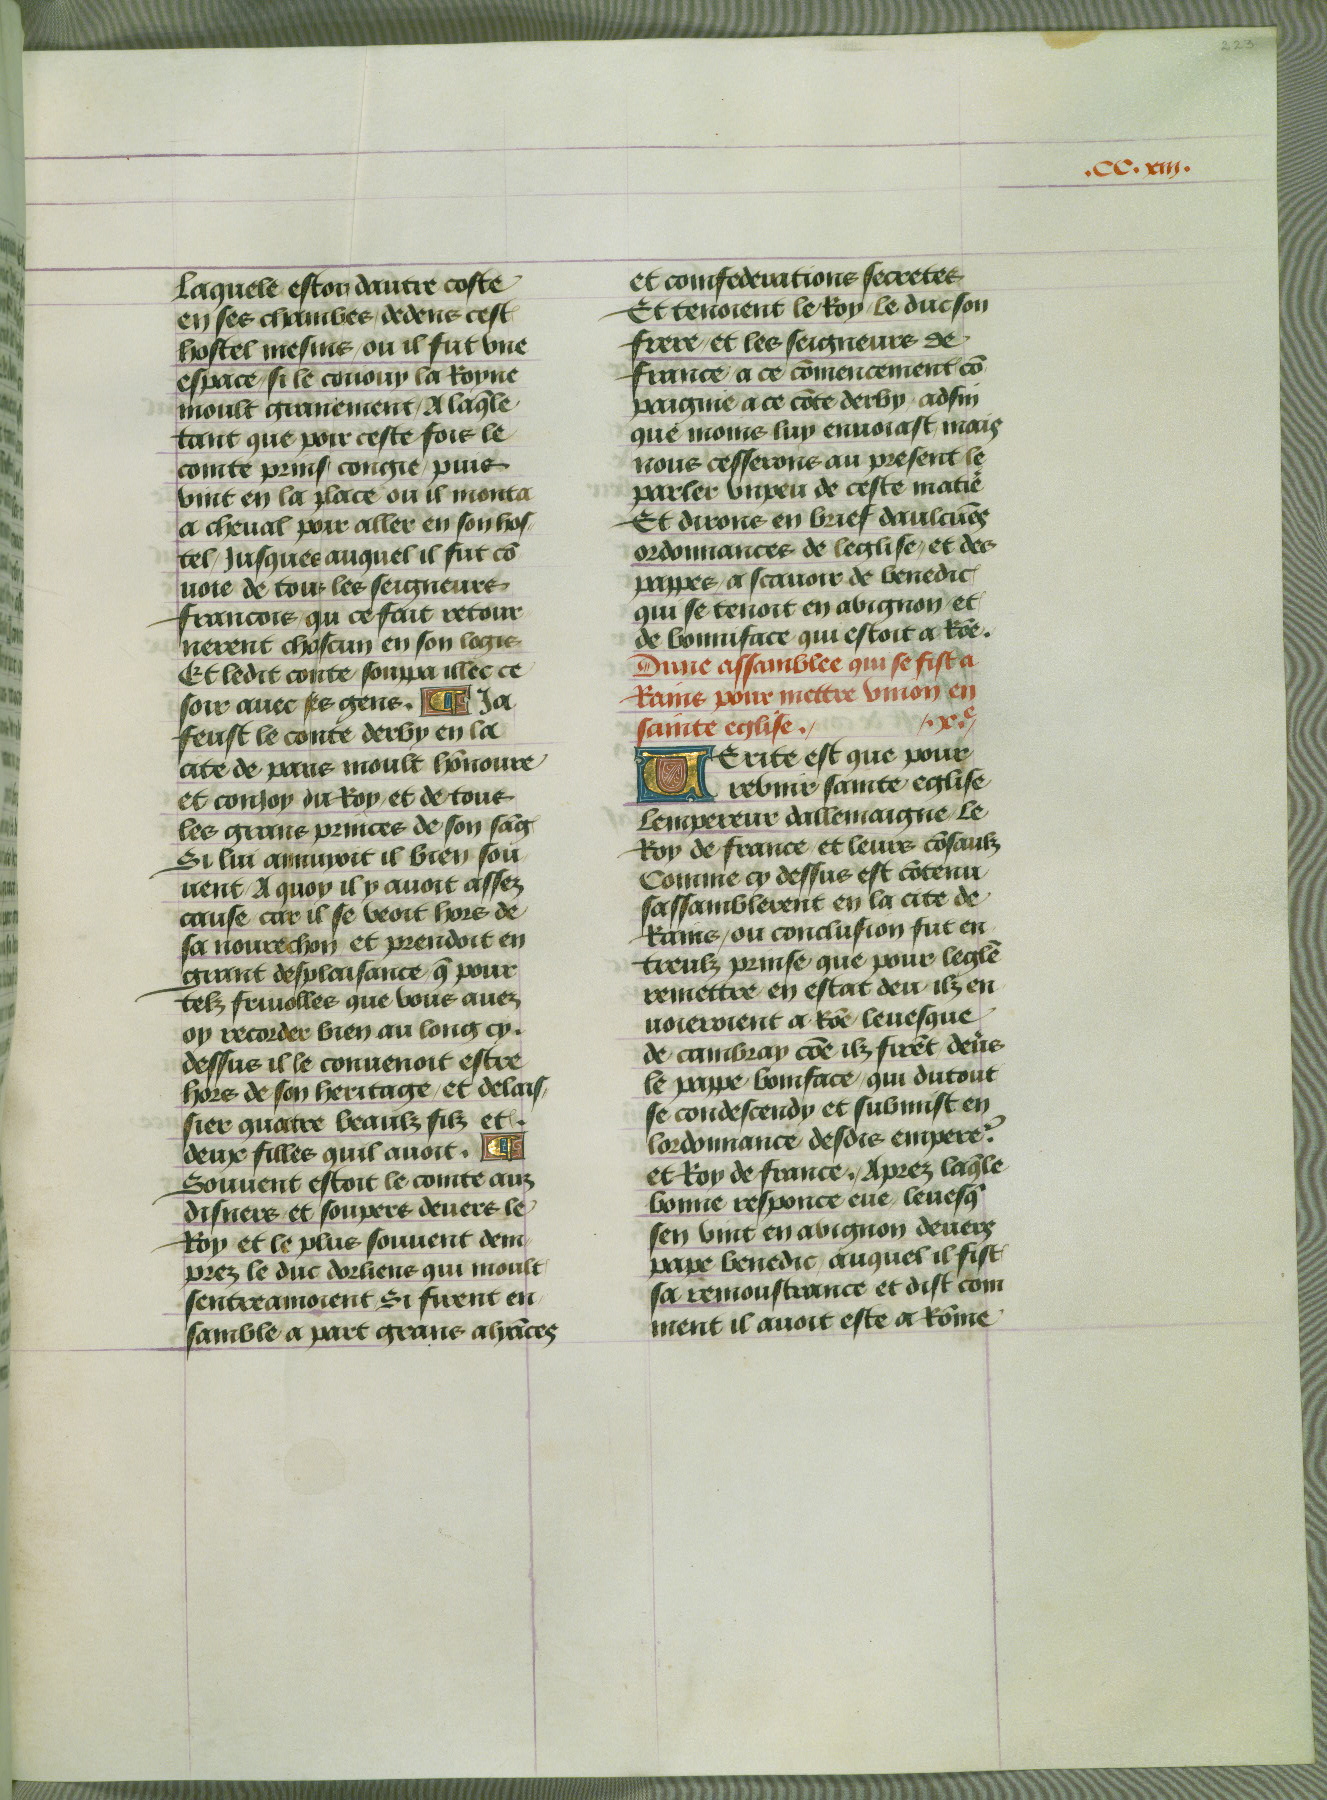 223
.CC. xiii.
Laquele estoit dautre coste
en ses chambes dedens cest
hostel mesms / ou il fut vne
espace / si le conouy la Royne
moult granement / A laq̄le
tant que pour ceste fois le
comte prinst congie / puis
vint en la place ou il monta
a cheual pour aller en son hos/
tel / Jusques auquel il fut cō
uoie de tous les seigneurs
francois qui ce fait retour
nerent chascun en son logis
Et ledit conte souppa illec ce
soir auec ses gens. Ja
feust le conte derby en la
cite de paris moult hōnoure
et conioy du Roy et de tous
les grans princes de son sāg
Si lui annuyoit il bien sou
uent / A quoy il y auoit assez
cause car il se veoit hors de
sa nourechon et prendoit en
grant desplaisance q̄ pour
telz friuolles que vous auez
oy recorder bien au long cy.
dessus il le conuenoit estre
hors de son heritage / et delais/
sier quatre beaulz filz et.
deux filles quil auoit.
Souuent estoit le comte aux
disners et soupers deuers le
Roy et le plus souuent dem
prez le duc dorliens qui moult
sentreamoient Si firent en
samble a part grans aliāces
et comfederations secretes
Et tenoient le Roy / le duc son
frere / et les seigneurs de
france / a ce cōmencement cō
paignie a ce cōte derby / adfin
que moins luy ennoiast / mais
nous cesserons au present le
parler vnpeu de ceste matie
Et dirons en brief daulcūes
ordonnances de leglise / et des
pappes / a scauoir de benedic
qui se tenoit en auignon et
de bonniface qui estoit a Rōe.
Dune assamblee qui se fist a
Rains pour mettre vnion en
sainte eglise. .x.e
Verite est que pour
revnir sainte eglise
lempereur dallemaigne Le
Roy de france / et leurs cōsaulz
Comme cy dessus est cōtenu
sassamblerent en la cite de
Rains / ou conclusion fut en
treulz prinse que pour leglē
remettre en estat deu ilz en
uoieroient a Rōe leuesque
de cambray cōe ilz firēt deūs
le pappe boniface / qui du tout
se condescendy et submist en
lordonnance desdis empere.
et Roy de france. Aprez laq̄le
bonne responce eue leuesq̄
sen vint en auignon deuers
pape benedic / auquel il fist
sa remoustrance et dist com
ment il auoit este a Rōme